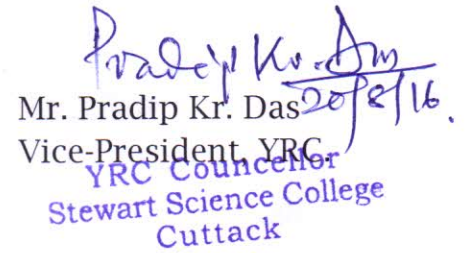 Pradip Kr. Das
20/8/16.
Mr. Pradip Kr. Das
Vice-President, YRC.
YRC Councellor
Stewart Science College
Cuttack